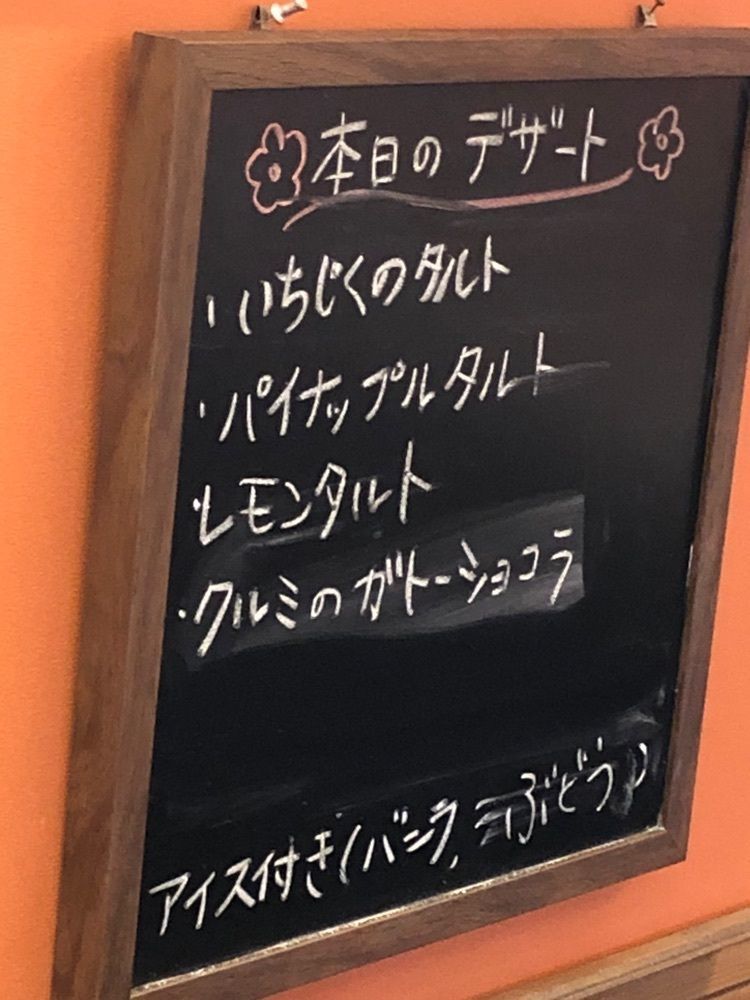 本日のデザート
・いちじくのタルト
・パイナップルタルト
・レモンタルト
・クルミのガトーショコラ
アイス付き(バニラ、ぶどう)